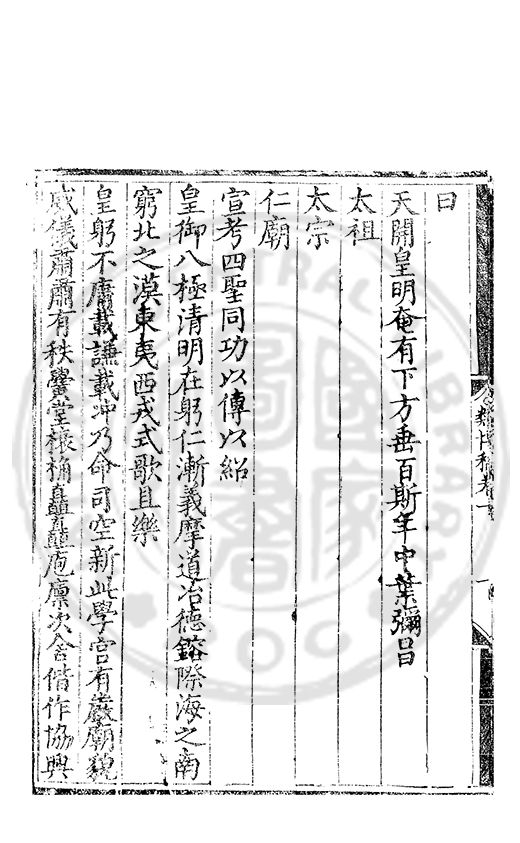 曰
天開皇明奄有下方垂百斯年中葉彌昌
太祖
太宗
仁廟
宣考四聖同功以傳以紹
皇御八極清明在躬仁漸義摩道冶德鎔際海之南
窮北之漠東夷西戎式歌且樂
皇躬不庸載謙載冲乃命司空新此學宮有嚴廟貌
威儀肅肅有秩黌堂
庖廪次舍偕作協興
類博稿卷